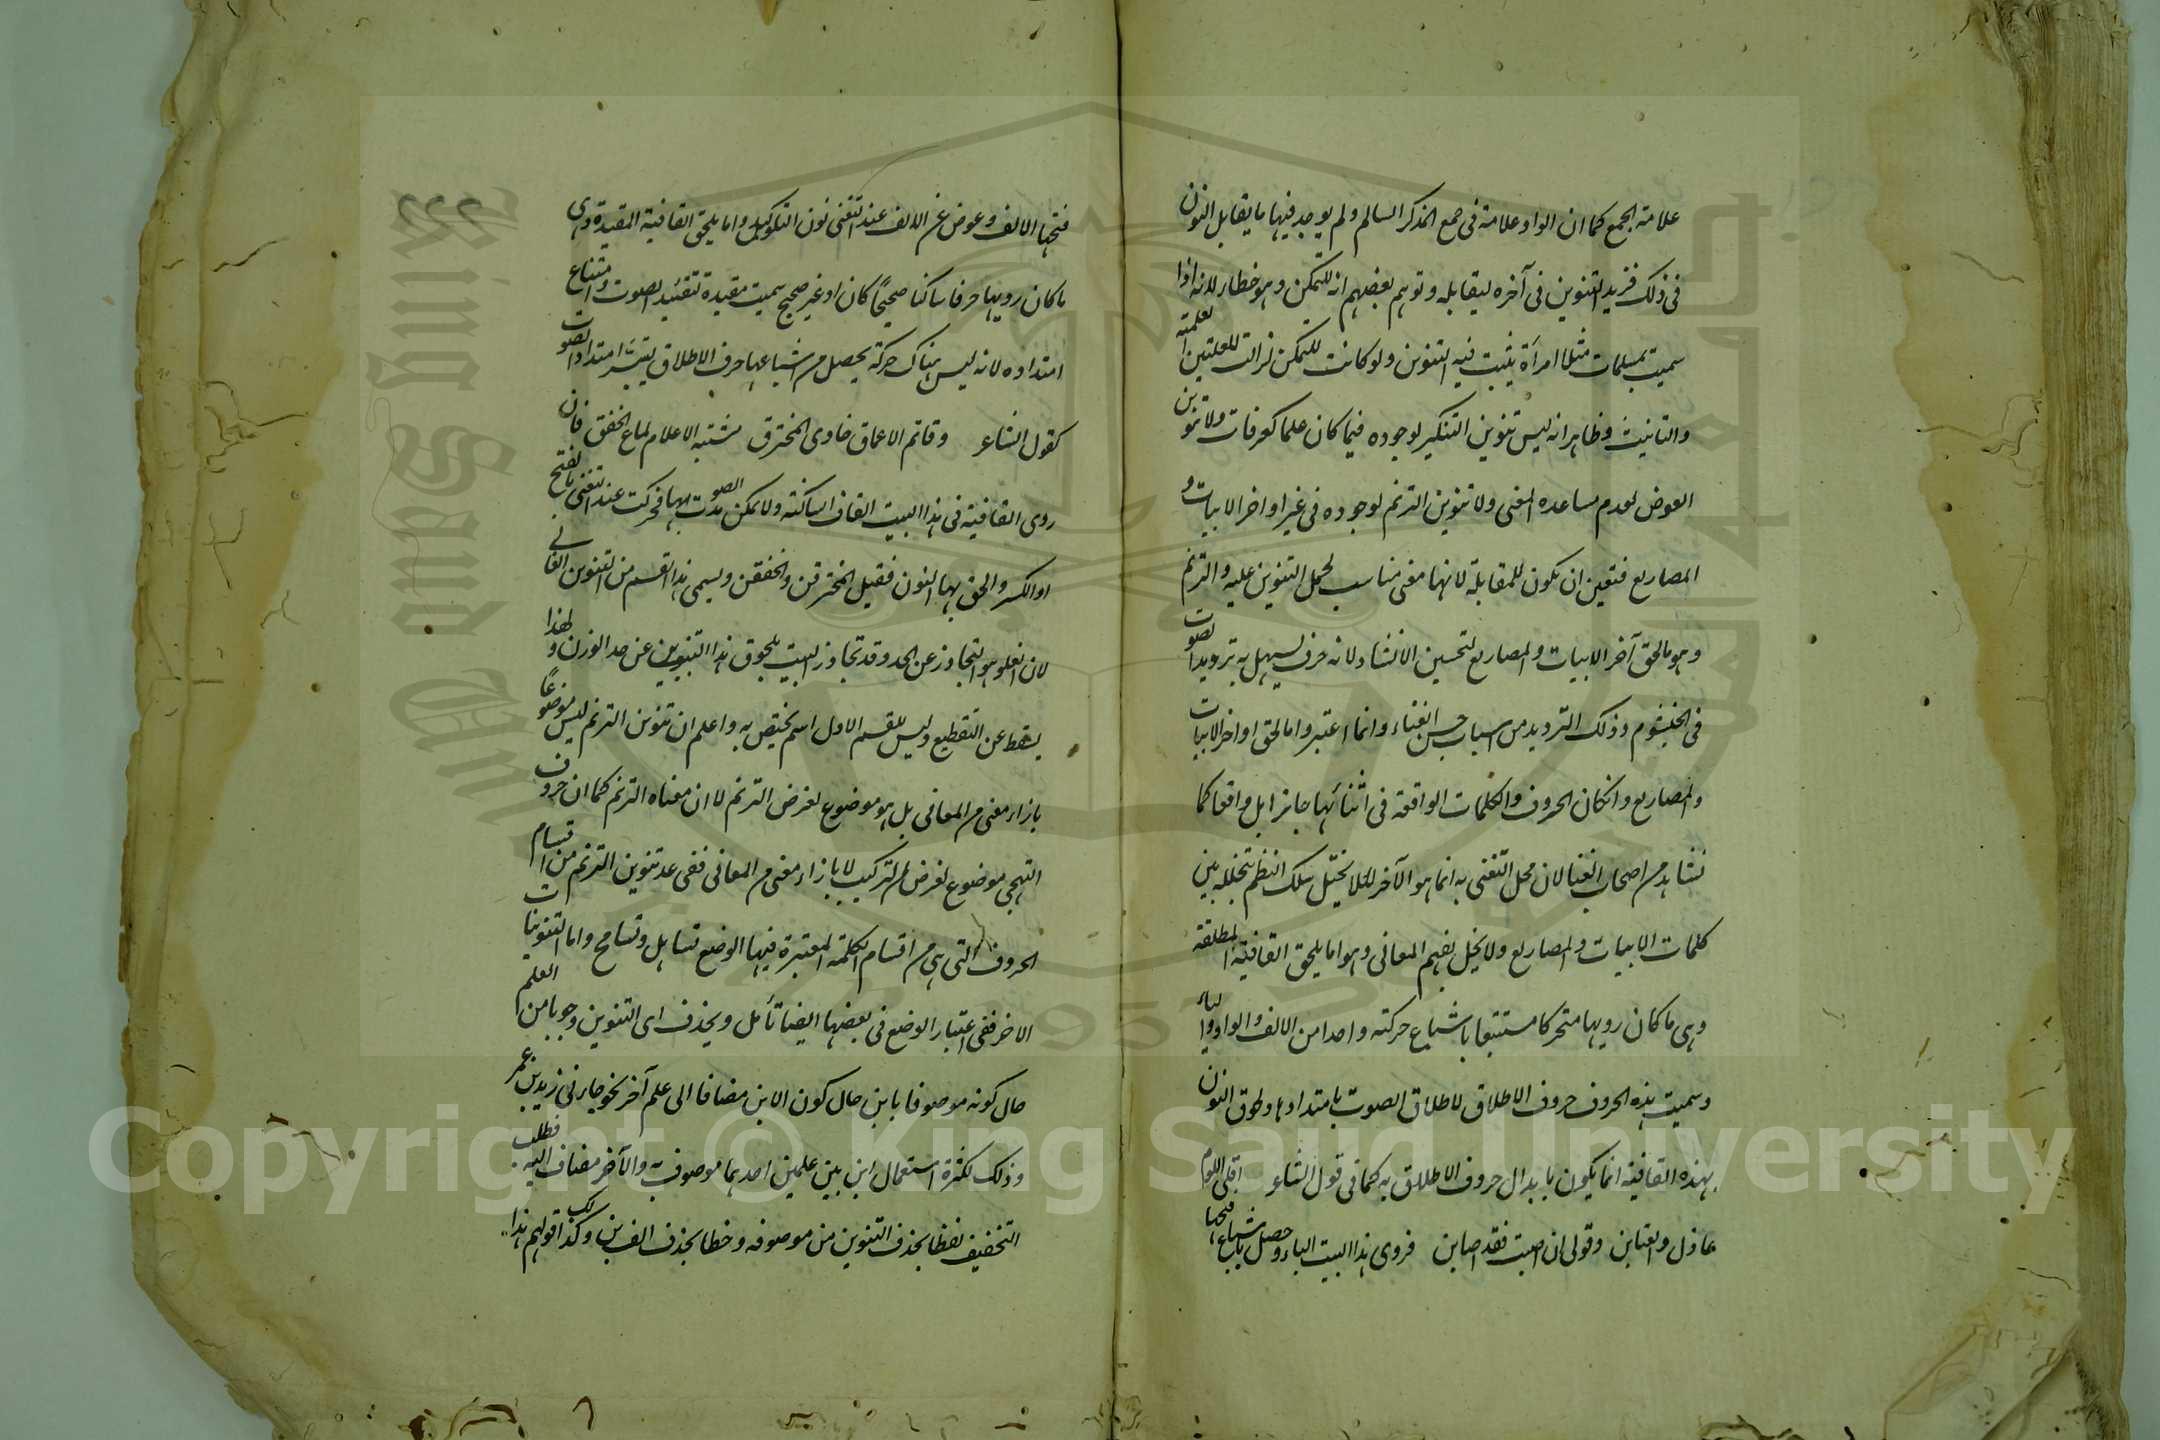 علامة الجمع كما ان الواو علامة فى جمع المذكر السالم ولم يوجد فيها ما يقابل النون
فى ذلك فزيد التنوين فى آخره ليقابله وتوهم بعضهم انه للتمكن وهو خطاء لانه اذا
سميت بمسلمات مثلا امرأة يثبت فيه التنوين ولو كانت للتمكن لزالت للعلتين العلمية
والتانيث وظاهر انه ليس تنوين التنكير لوجوده فيما كان علما كعرفات ولا تنوين
العوض لعدم مساعده المعنى ولا تنوين الترنم لوجوده فى غير اواخر الابيات و
المصاريع فتعين ان يكون للمقابلة لانها معنى مناسب لحمل التنوين عليه والترنم
وهو ما لحق آخر الابيات والمصاريع لتحسين الانشاد لانه حرف يسهل به ترديد الصوت
فى الخيشوم وذلك الترديد من اسباب حسن الغناء وانما اعتبروا ما لحق اواخر الابيات
والمصاريع وانكان الحروف والكلمات الواقعة فى اثنائها جائزا بل واقعا كما
نشاهد من اصحاب الغنا لان محل التغنى به انما هو الآخر لئلا يختل سلك النظم بتخلله بين
كلمات الابيات والمصاريع ولا يخل بفهم المعانى وهو اما يلحق القافية المطلقة
وهى ما كان رويها متحركا مستتبعا باشباع حركته واحدا من الالف والواو والياء
وسميت هذه الحروف حروف الاطلاق لاطلاق الصوت بامتدادها ولحوق النون
بهذه القافية انما يكون بابدال حروف الاطلاق به كما فى قول الشاعر اقلى اللوم
عاذل والعتابن وقولى ان اصبت فقد اصابن فروى هذا البيت الباء وحصل باشباع فتحها
فتحها الالف وعوض عن الالف عند التغنى نون واما يلحق القافية المقيدة وهى
ما كان رويها حرفا ساكنا صحيحًا كان او غير صحيح سميت مقيدة لتقييد الصوت وامتناع
امتداده لانه ليس هناك حركة يحصل من اشباعها حرف الاطلاق يتيسر امتداد الصوت
كقول الشاعر وقاتم الاعماق خاوى المخترق مشتبه الاعلام لماع الخفق فان
روى القافية فى هذا البيت القاف الساكنة ولا يمكن مدت الصو بها فحركت عند التغنى بالفتح
او الكسر والحق بها النون فقيل المخترقن والخفقن ويسمى هذا القسم من التنوين الغالى
لان الغلو هو التجاوز عن الحد وقد تجاوز البيت بلحوق هذا التنوين عن حد الوزن ولهذا
يسقط عن التقطيع وليس للقسم الاول اسم يختص به واعلم ان تنوين الترنم ليس موضوعًا
بازاء معنى من المعانى بل هو موضوع لغرض الترنم لا ان معناه الترنم كما ان حروف
التهجى موضوع لغرض التركيب لا بازاء معنى من المعانى ففى عد تنوين الترنم من اقسام
الحروف التى هى من اقسام الكلمة المعتبرة فيها الوضع تساهل وتسامح واما التنوينات
الاخر ففى اعتبار الوضع فى بعضها ايضا تأمل ويحذف اى التنوين وجوبا من العلم
حال كونه موصوفا بابن حال كون الابن مضافا الى علم آخر نحو جاءنى زيد بن عمر
وذلك لكثرة استعمال ابن بين علمين احدهما موصوف به والآخر مضاف اليه فطلب
التخفيف لفظا بحذف التنوين من موصوفه وخطا بحذف الف ابن وكذلك قولهم هذا